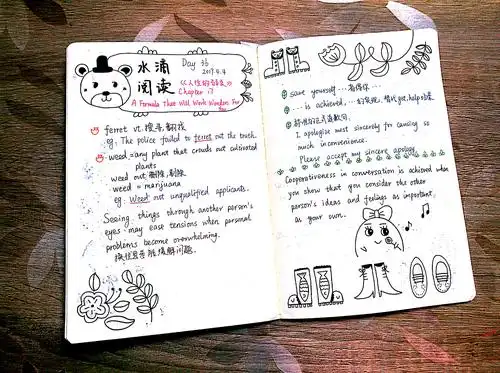 水滴
阅读
Day 36
2019.4.4
《人性的弱点》
Chapter 17
A Formula That Will Work Wonders For
You
ferret vt. 搜寻, 翻找
eg: The police failed to ferret out the truth.
weed = any plant that crowds out cultivated
plants
weed out 删除, 剔除
weed = marijuana
eg: Weed out unqualified applicants.
Seeing things through another person's
eyes may ease tensions when personal
problems become overwhelming.
换位思考能缓解问题.
save yourself ... 省得你...
... is achieved, ... 的实现, 替代 get, help 句式
特别的正式道歉句.
I apologise most sincerely for causing so
much inconvenience.
Please accept my sincere apology.
Cooperativeness in conversation is achieved when
you show that you consider the other
person's ideas and feelings as important
as your own.